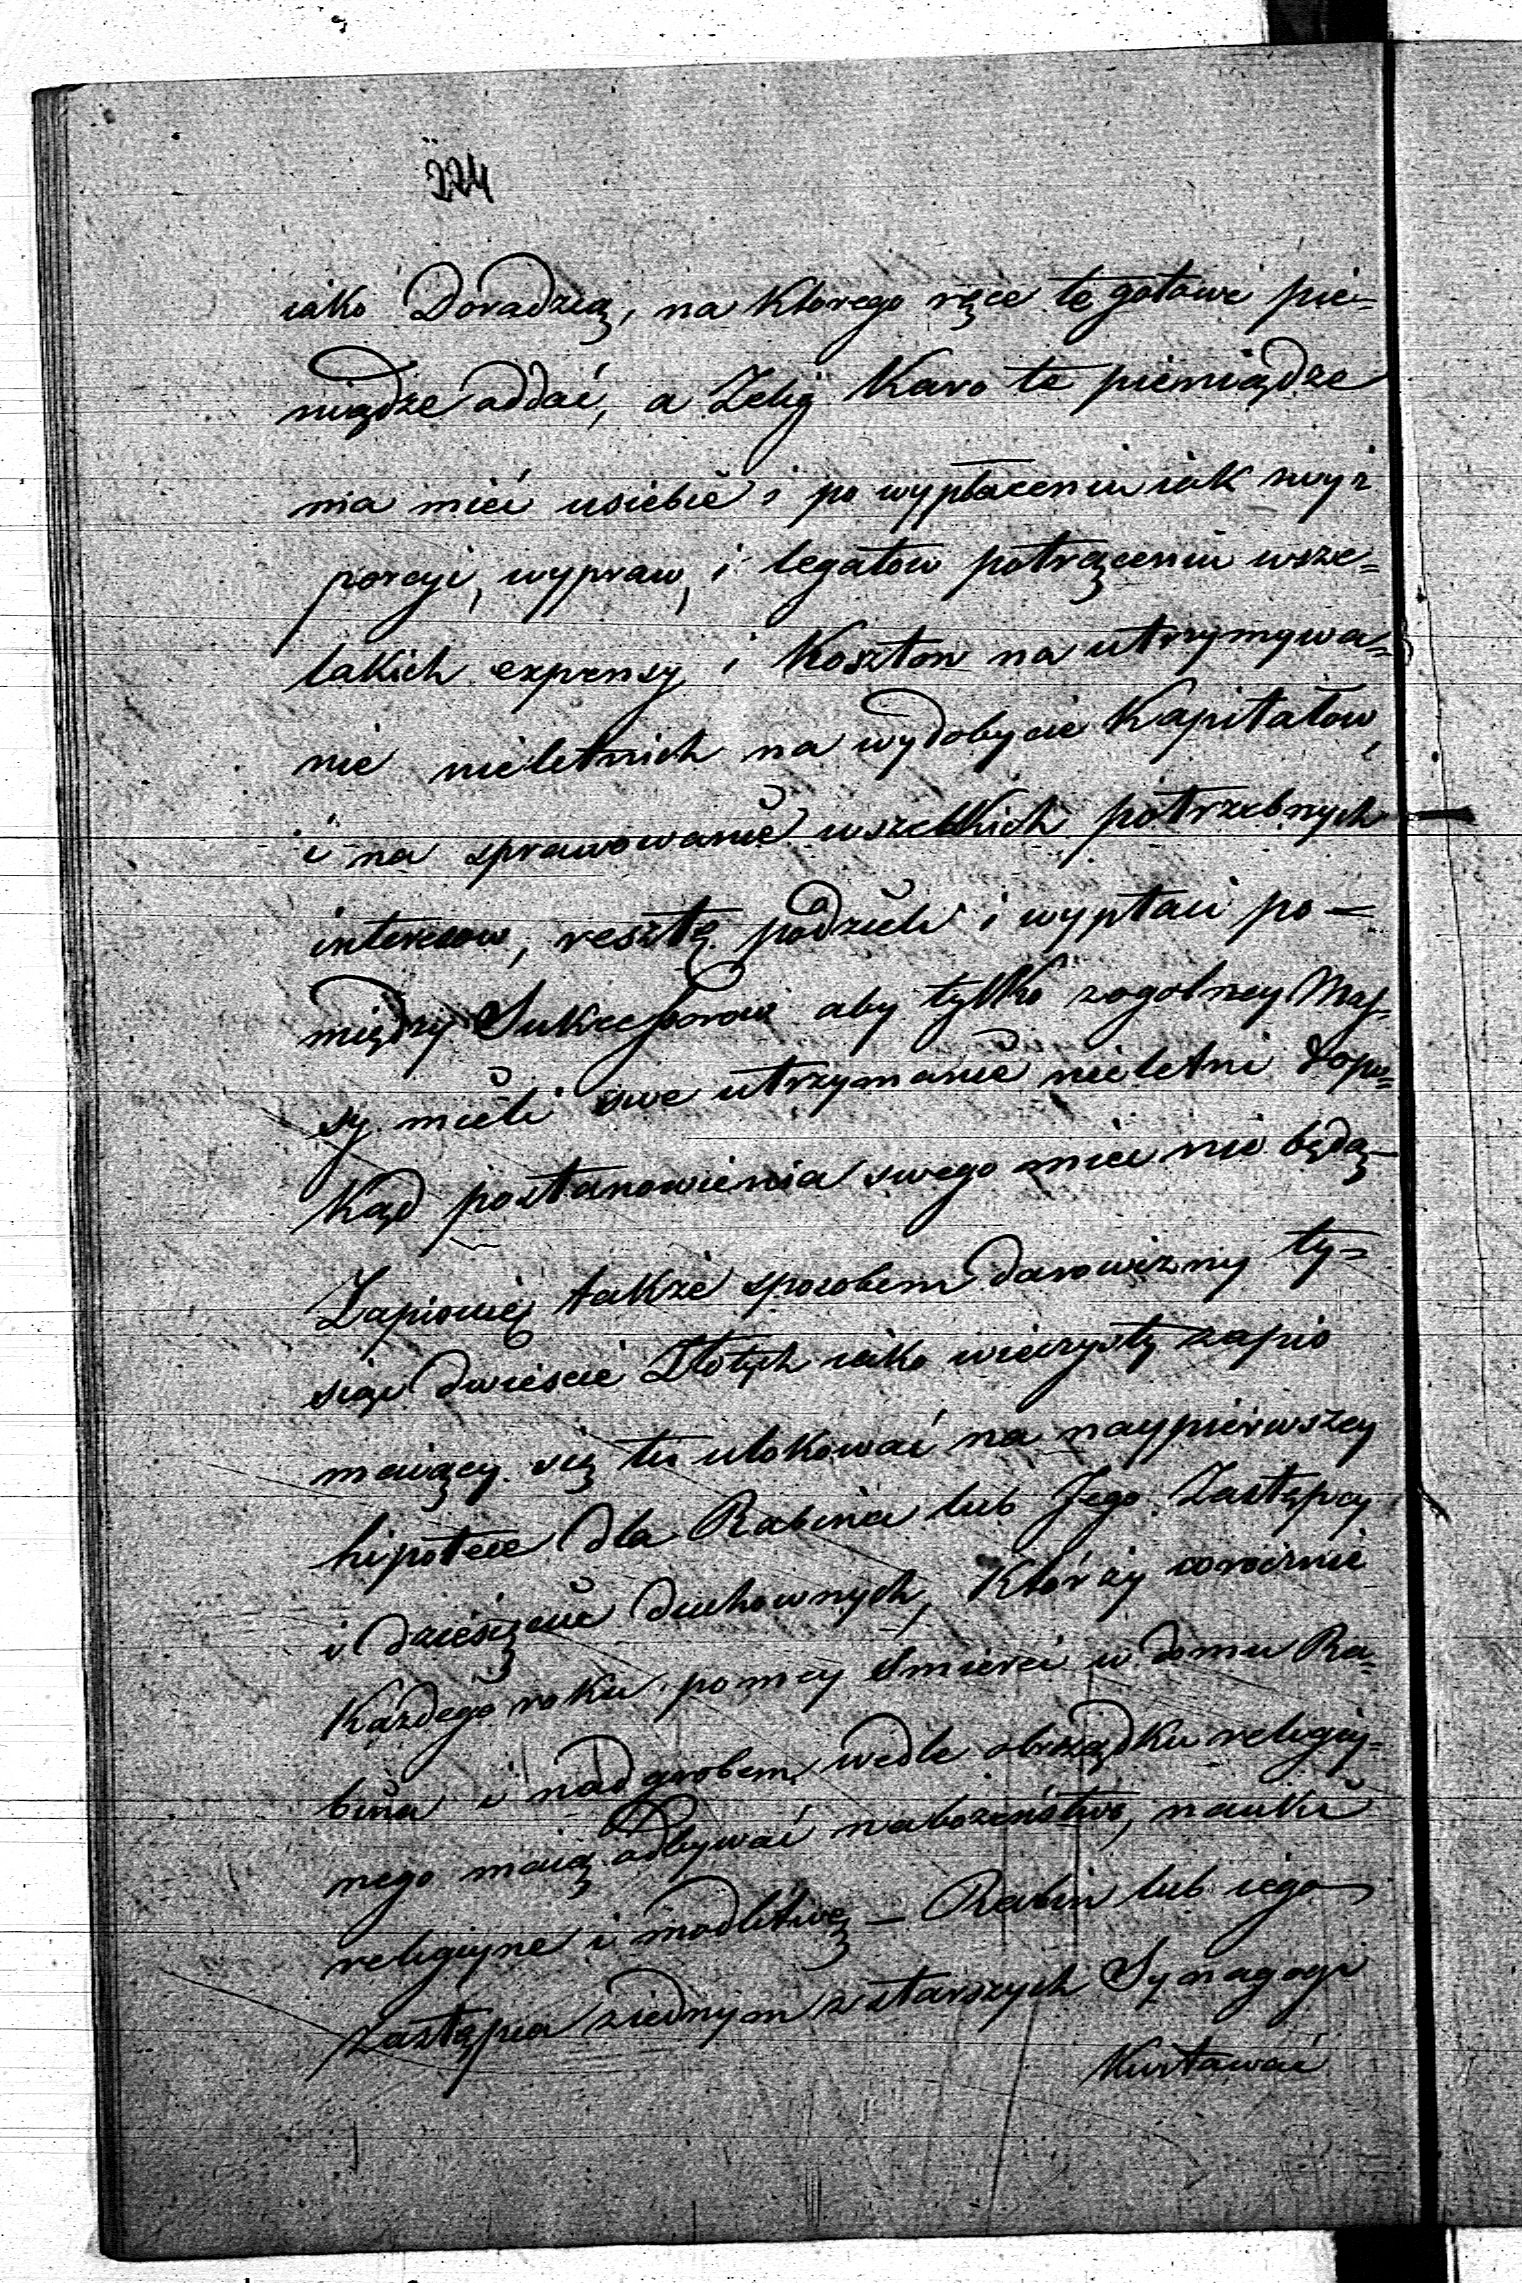 224
iako Doradzcą, na którego ręce te gotowe pie=
niądze oddać, a Zelig Karo te pieniądze
ma mieć usiebie i po wypłaceniu iak wyż
porcyi, wypraw, i legatow potrąceniu wsze=
lakich expensy i Kosztow na utrzymywa=
nie nieletnich na wydobycie Kapitałow,
i na sprawowanie wszelkich potrzebnych
interesow, resztę podzieli i wypłaci po=
między Sukcessorow aby tylko zogolney Mas=
sy mieli swe utrzymanie nieletni dopo=
Kąd postanowienia swego mieć nie będą
Zapisuię także sposobem darowizny ty=
siąc dwieście Złotych iako wieczysty zapis
maiący się tu ulokować na naypierwszey
hipotece dla Rabina lub Jego Zastępcy
i dziesięciu duchownych, Którzy corocznie
Każdego roku po mey śmierci w domu Ra=
bina i nad grobem wedle obrządku religiy=
nego maią odbywać nabożeństwo, nauki
religiyne i modlitwę — Rabin lub iego
Zastępca ziednym z starszych Synagogi